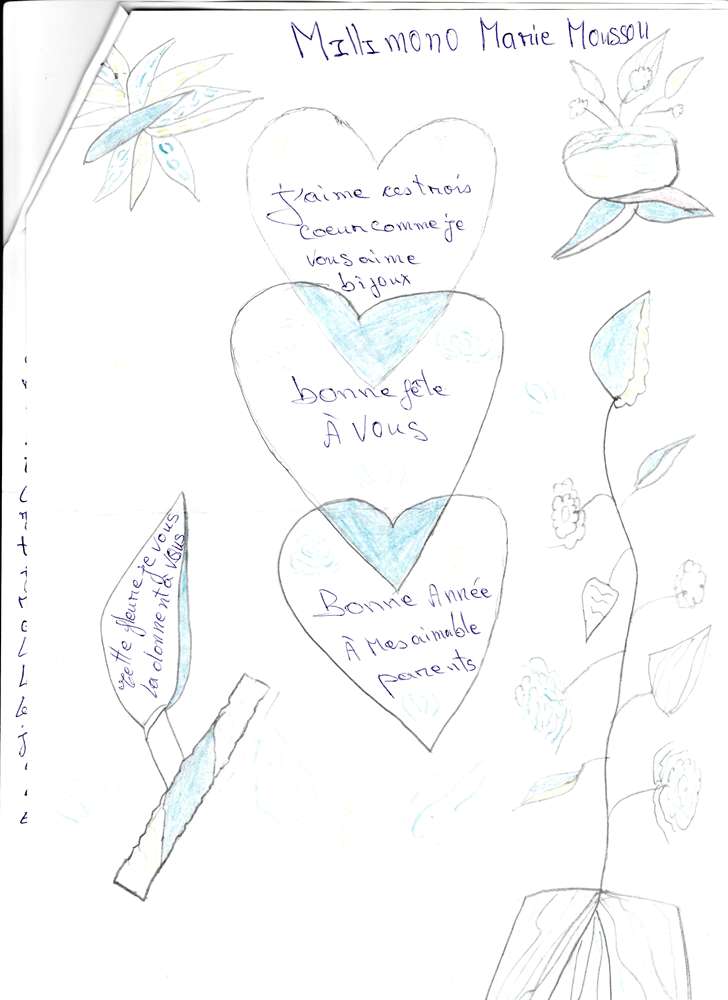 Millimono Marie Moussou
J'aime ces trois
coeur comme je
vous aime
bijoux
bonne fête
À Vous
Bonne Année
À Mes aimable
parents
cette fleure je vous
la donnent à vous